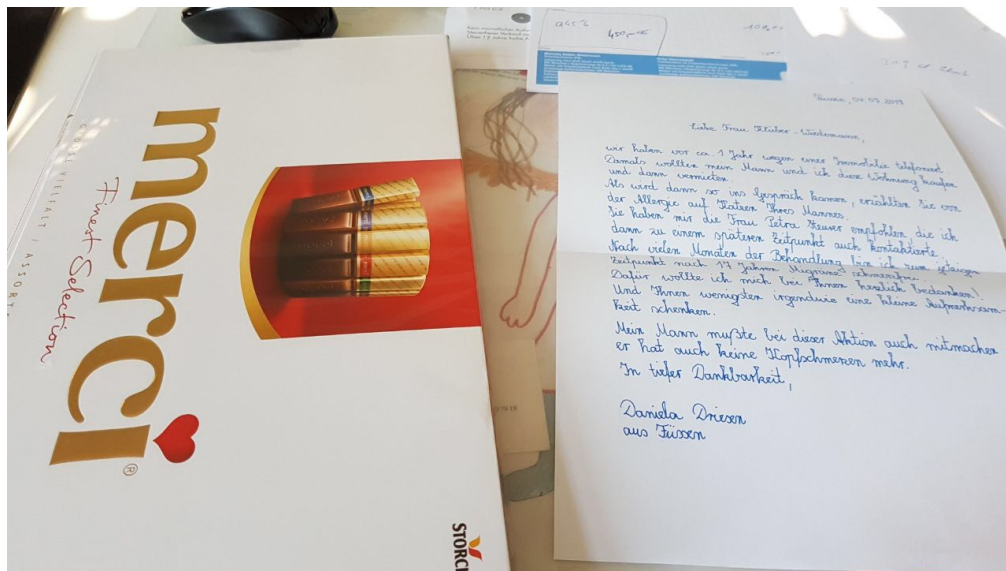 merci
®
Finest Selection
STORCK
450,-€
Füssen, 07.03.2018
Liebe Frau
wir haben vor ca. 1 Jahr wegen einer Immobilie telefoniert.
Damals wollten mein Mann und ich diese Wohnung kaufen
und dann vermieten.
Als wird dann so ins Gespräch kamen, erzählten Sie von
der Allergie auf Katzen Ihres Mannes.
Sie haben mir die Frau Petra empfohlen die ich
dann zu einem späteren Zeitpunkt auch kontaktierte.
Nach vielen Monaten der Behandlung bin ich zum jetzigen
Zeitpunkt nach 17 Jahren Migräne schmerzfrei.
Dafür wollte ich mich bei Ihnen herzlich bedanken!
Und Ihnen wenigsten irgendwie eine kleine Aufmerksam-
keit schenken.
Mein Mann mußte bei dieser Aktion auch mitmachen
er hat auch keine Kopfschmerzen mehr.
In tiefer Dankbarkeit,
Daniela Driesen
aus Füssen